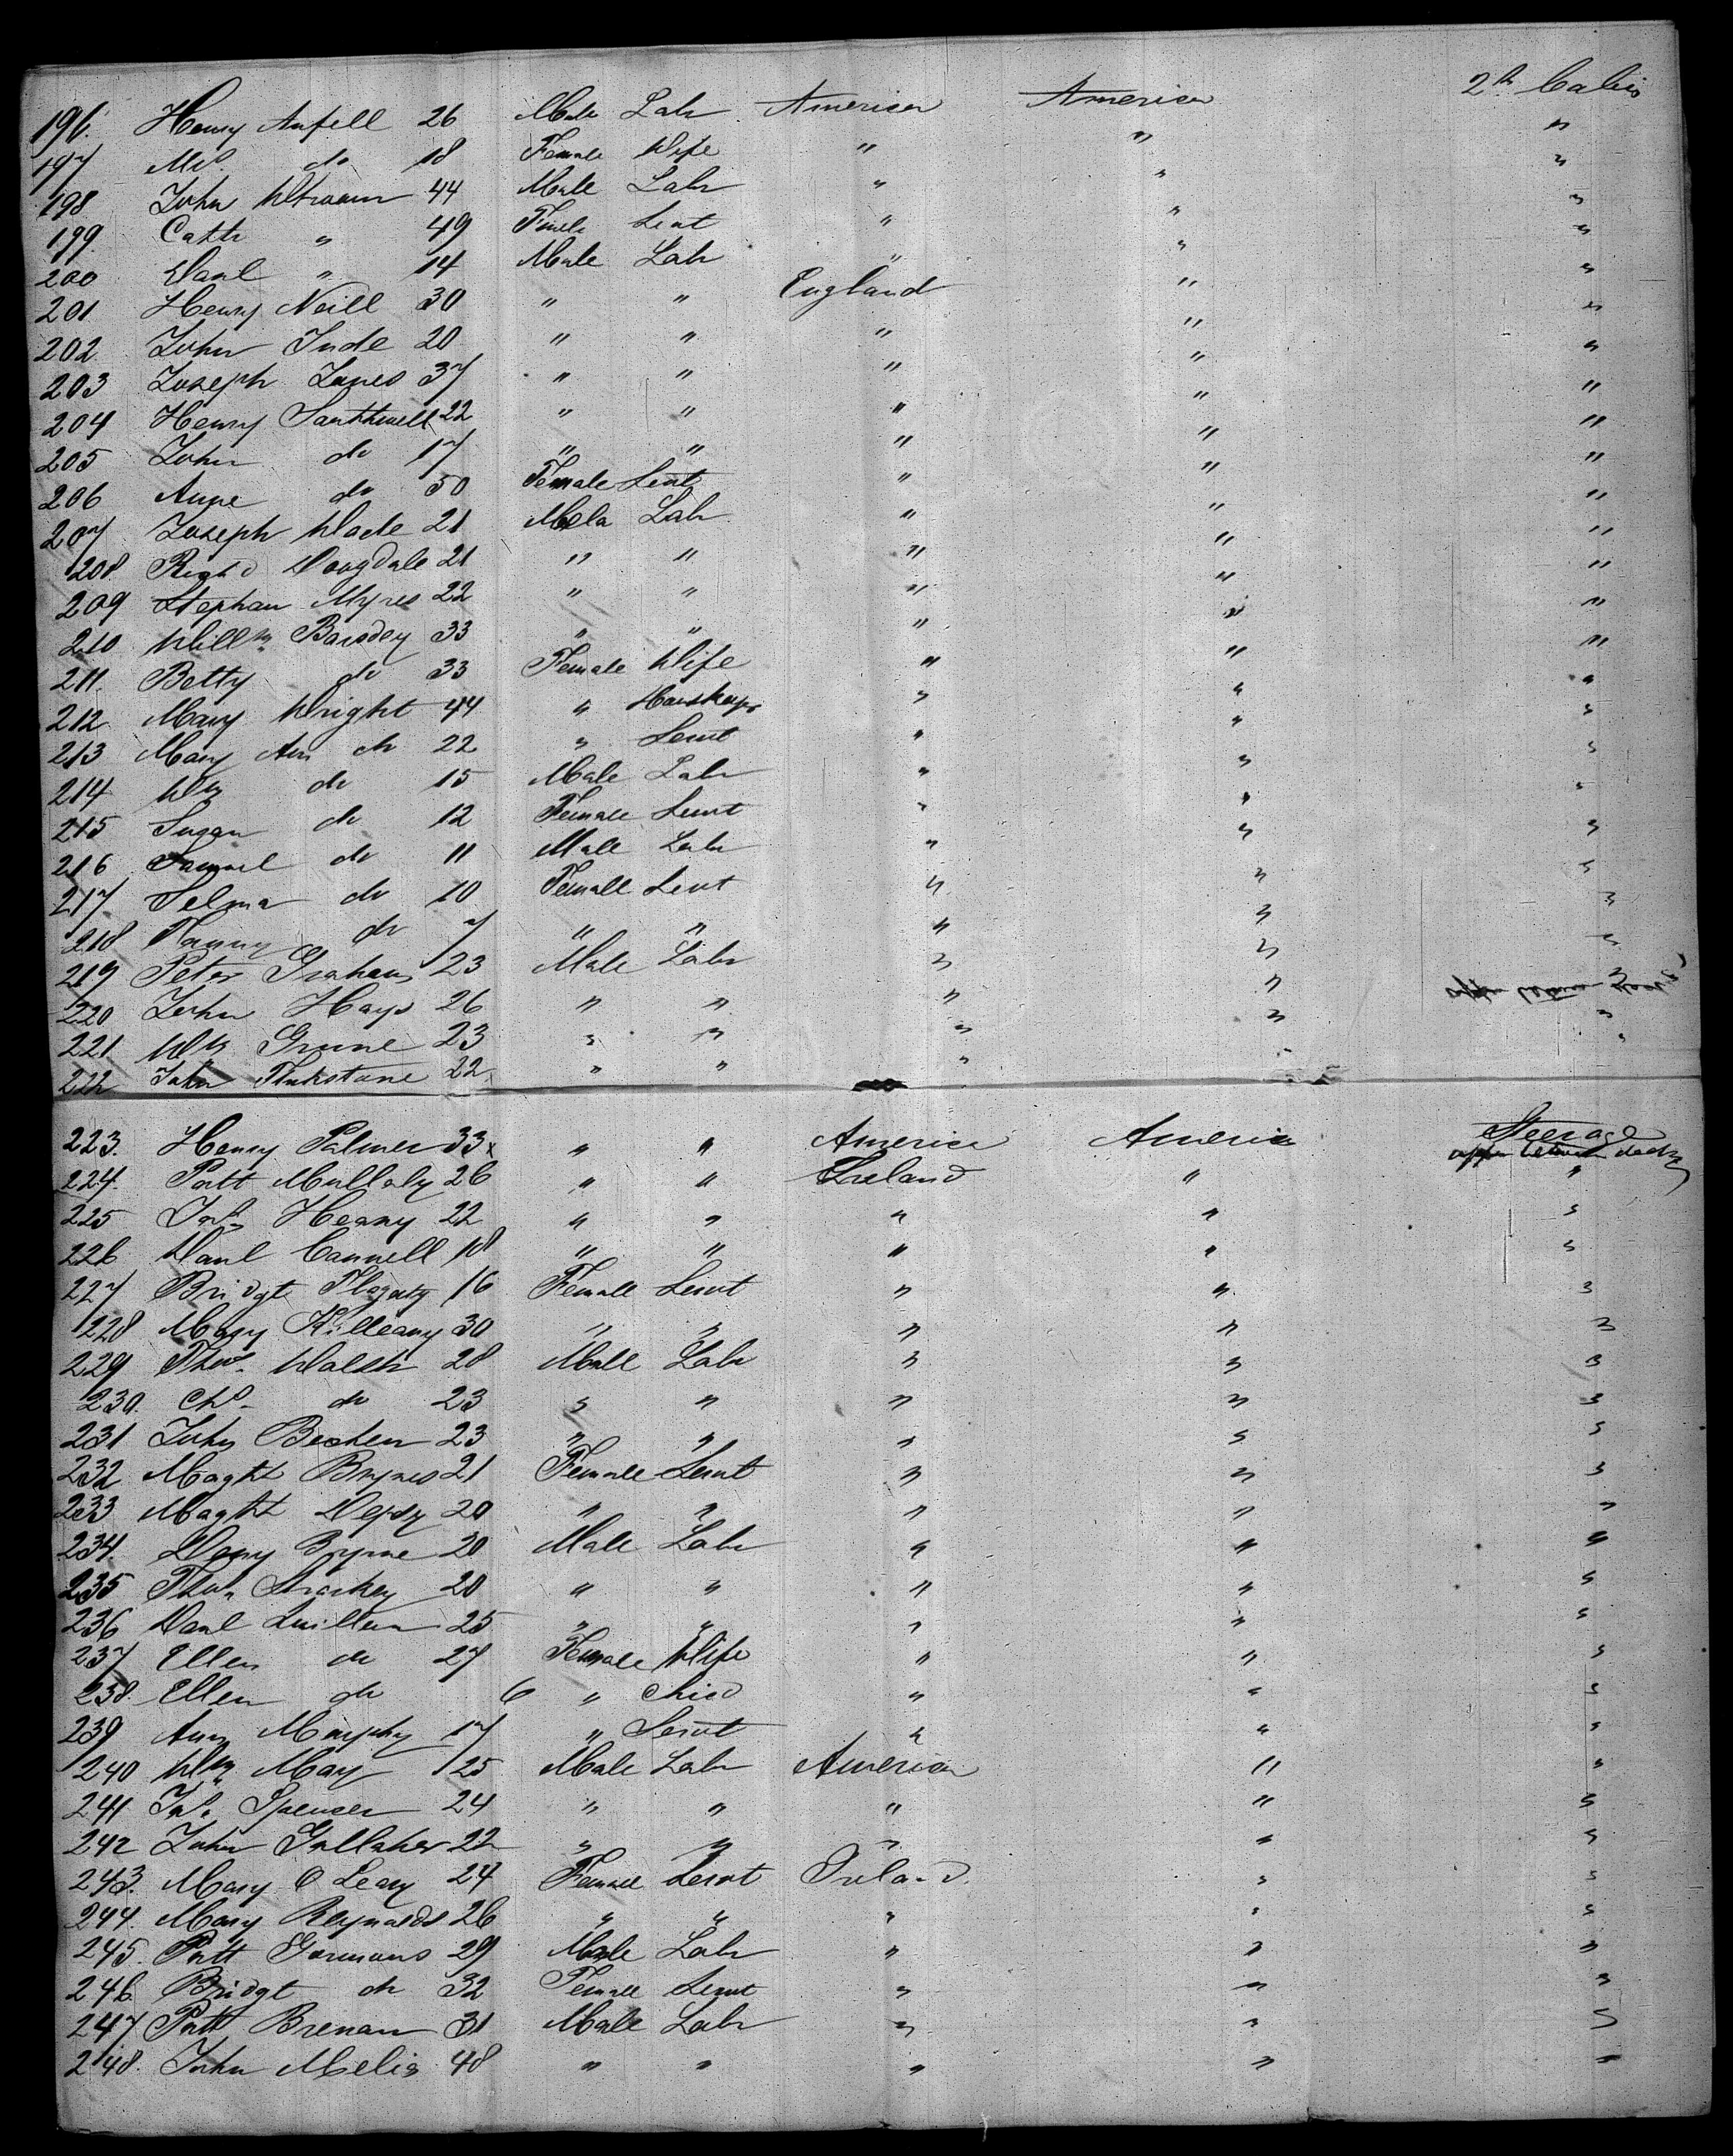 196. Henry Anfell 26 Male Labr America America 2th Cabin
197 Mrs. do 18 Female Wife " " "
198 John 44 Male Labr " " "
199. Cath " 49 Femele Sevt " " "
200 Danl " 14 Male Labr " " "
201 Henry Neill 30 " " England " "
202. John Inde 20 " " " " "
203 Joseph Jones 37 " " " " "
204 Henry Santhwell 22 " " " " "
205 John do 17 " " " " "
206 Anne do 50 Female Sevt " " "
207 Joseph Wade 21 Male Labr " " "
208. Richd Dougdale 21 " " " " "
209 Stephan Myres 22 " " " " "
210 Willm Barsdey 33 " " " " "
211. Betty do 33 Female Wife " " "
212 Mary Wright 44 " " " "
213 Mary Ann do 22 " Sevt " " "
214 Wm do 15 Male Labr " " "
215 Susan do 12 Female Sevt " " "
216 Samuel do 11 Male Labr " " "
217 Selma do 10 Female Sevt " " "
218 Fanny do 7 " " " " "
219 Peter Graham 23 Male Labr " " "
220 John Hays 26 " " " " "
221 Wm Grune 23 " " " " "
222 John Flukstone 22 " " " "
223. Henry Palmer 33 x " " America America Steerage
upper between decks
224. Patt Mullaly 26 " " Ireland " "
225 Jas. Heany 22 " " " " "
226 Danl Cannell 18 " " " " "
227 Bridgt 16 Female Sevt " " "
228 Mary Killeany 30 " " " " "
229 Thos. Walsh 28 Male Labr " " "
230. Chs. do 23 " " " " "
231 John 23 " " " " "
232 Maght Brynes 21 Female Sevt " " "
233 Maght 20 " " " " "
234. Bryrne 20 Male Labr " " "
235 Thos. Sharkey 20 " " " " "
236 Danl Quillen 25 " " " " "
237 Ellen do 27 Female Wife " " "
238. Ellen do 6 " Child " " "
239 Ann Murphy 17 " Sevt " " "
240 Wm May 25 Male Labr America " "
241 Jas. Spencer 24 " " " " "
242 John Gallaher 22 " " " " "
243. Mary O Leary 24 Female Sevt Ireland " "
244. Mary Reynalds 26 " " " " "
245. Patt Gormans 29 Male Labr " " "
246. Bridgt do 32 Female Sevt " " "
247 Patt Brenan 31 Male Labr " " "
248. John Melis 48 " " " " "